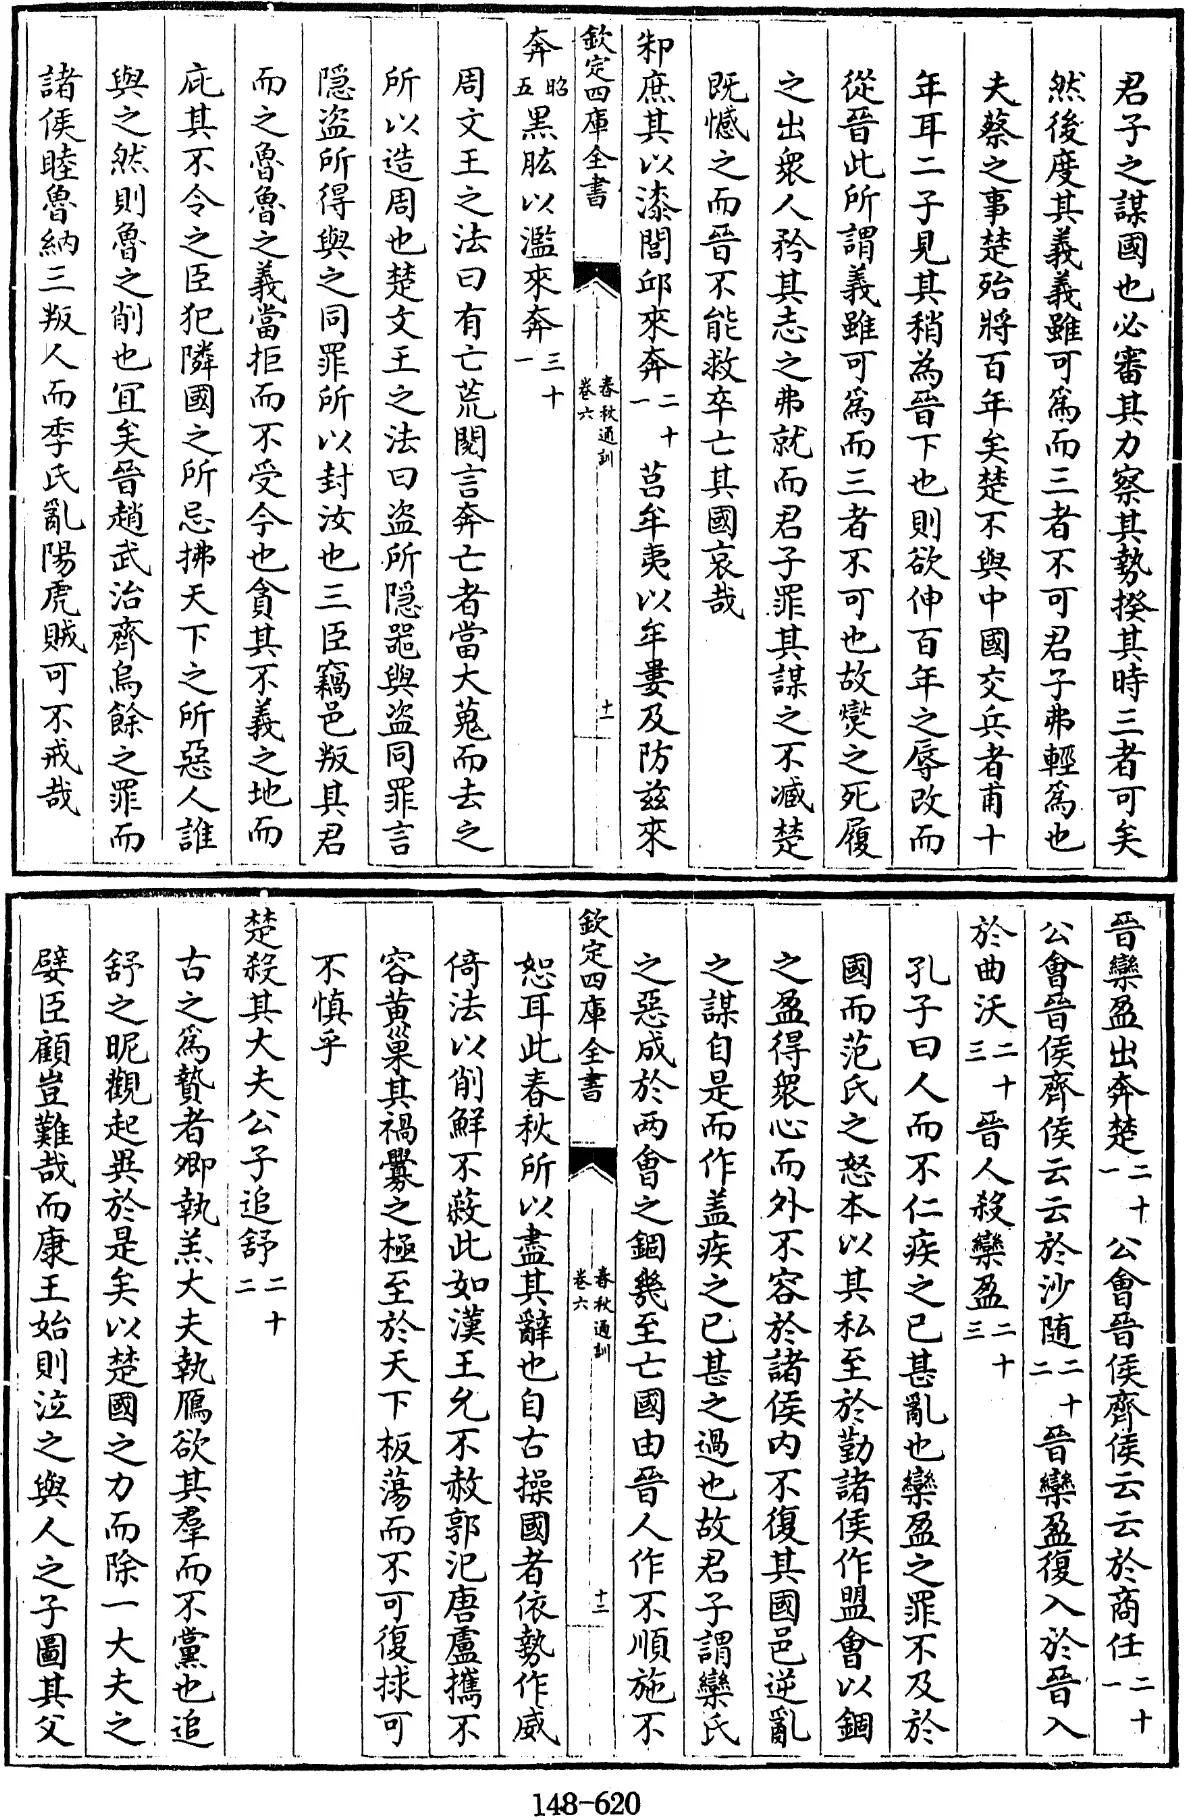 君子之謀國也必審其力察其勢揆其時三者可矣
然後度其義義雖可為而三者不可君子弗輕為也
夫蔡之事楚殆將百年矣楚不與中國交兵者甫十
年耳二子見其稍為晉下也則欲伸百年之辱改而
從晉此所謂義雖可為而三者不可也故燮之死履
之出衆人矜其志之弗就而君子罪其謀之不臧楚
既憾之而晉不能救卒亡其國哀哉
邾庶其以漆閭邱來奔二十一 莒牟夷以牟婁及防兹來
欽定四庫全書 春秋通訓 卷六 十一
奔昭五黑肱以濫來奔三十一
周文王之法曰有亡荒閱言奔亡者當大蒐而去之
所以造周也楚文王之法曰盜所隱器與盜同罪言
隱盜所得與之同罪所以封汝也三臣竊邑叛其君
而之魯魯之義當拒而不受今也貪其不義之地而
庇其不令之臣犯隣國之所忌拂天下之所惡人誰
與之然則魯之削也宜矣晉趙武治齊烏餘之罪而
諸侯睦魯納三叛人而季氏亂陽虎賊可不戒哉
晉欒盈出奔楚二十一 公會晉侯齊侯云云於商任二十一
公會晉侯齊侯云云於沙随二十二 晉欒盈復入於晉入
於曲沃二十三 晉人殺欒盈二十三
孔子曰人而不仁疾之已甚亂也欒盈之罪不及於
國而范氏之怒本以其私至於勤諸侯作盟會以錮
之盈得衆心而外不容於諸侯内不復其國邑逆亂
之謀自是而作盖疾之已甚之過也故君子謂欒氏
之惡成於两會之錮幾至亡國由晉人作不順施不
欽定四庫全書 春秋通訓 卷六 十二
恕耳此春秋所以盡其辭也自古操國者依勢作威
倚法以削鮮不蔽此如漢王允不赦郭汜唐盧攜不
容黄巢其禍釁之極至於天下板蕩而不可復捄可
不慎乎
楚殺其大夫公子追舒二十二
古之為贄者卿執羔大夫執鴈欲其羣而不黨也追
舒之昵觀起異於是矣以楚國之力而除一大夫之
嬖臣顧豈難哉而康王始則泣之與人之子圖其父
148-620